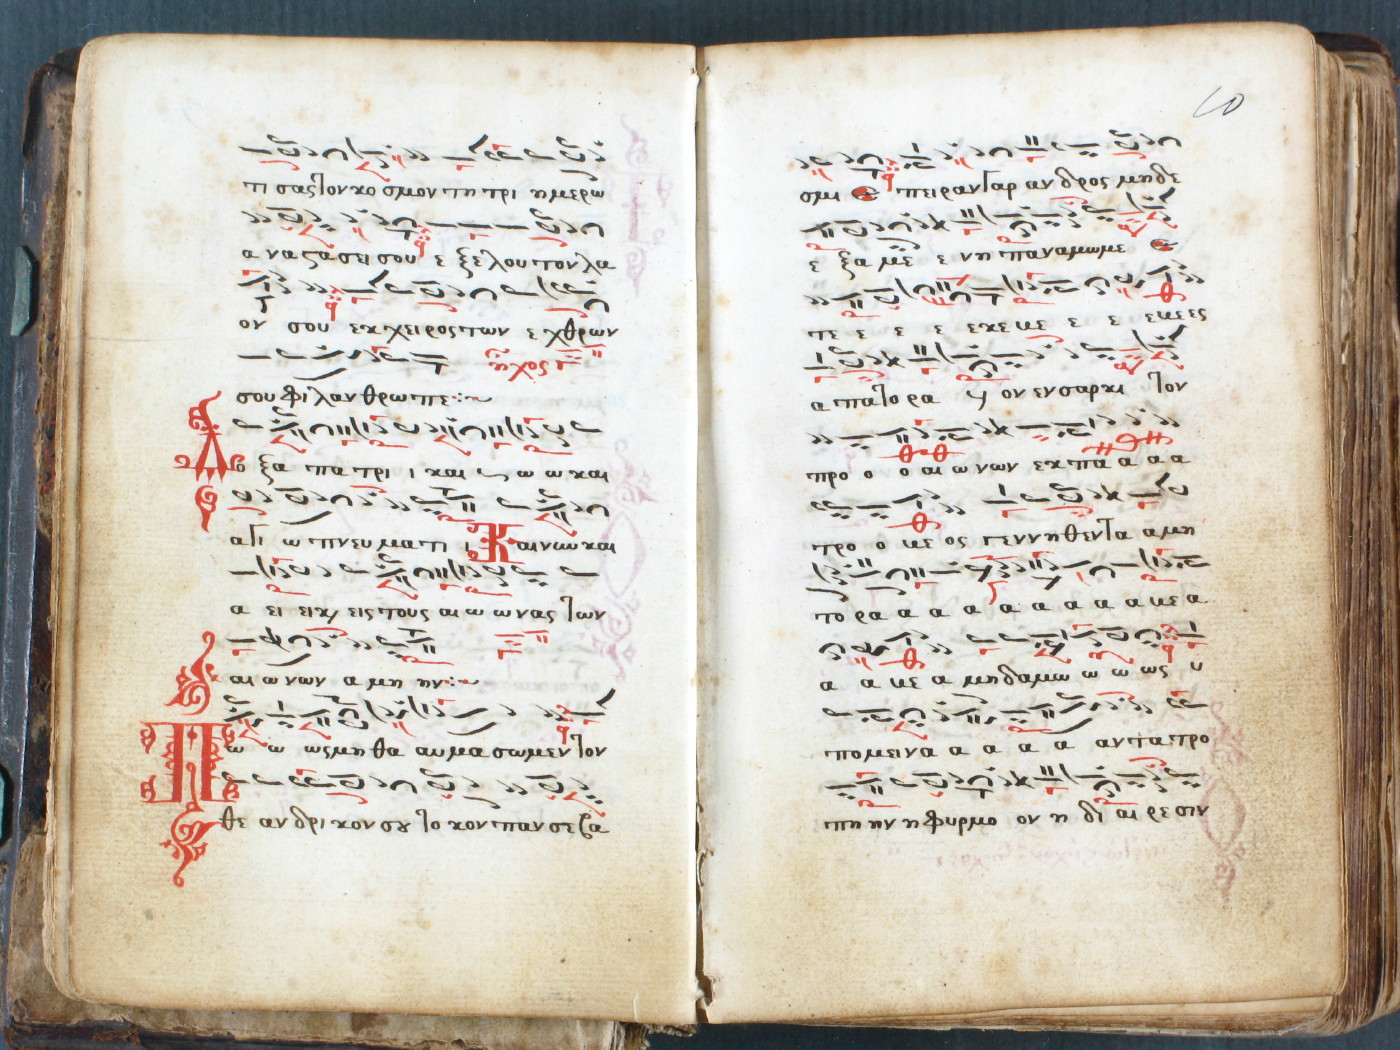 τι σας τον κο σμον τη τρι η μερω
α να στα σει σου ε ξε λου τον λα
ον σου εκ χειρος των ε χθρων
ηχος
σου φι λαν θρω πε
Δο ξα πα τρι ι και υ ω ω και
α γι ω πνευ μα τι ι Και νυν και
α ει ει κ εις τους αι ω ω νας των
αι ω νων α μη ην
Πω ω ως μη θα αυ μα σωμεν τον
θε αν δρι κον σȣ το κον παν σε βα
60
σμι ε πειραν γαρ αν δρος μη δε
ε ξα με ε νη παναμωμε ε
τε ε ε ε εχε χε ε ε εχε ες
α πα το ρα υ ον εν σαρκι τον
προ ο ο αι ω νων εκ πα α α α
προ ο χε ος γεν νη θεν τα α μη
το ρα α α α α α α α α χε α
α α χε α μη δα μω ω ω ως υ
πο μεινα α α α α αν τα τρο
πη ην η φυρμο ον η δι αι ρε σιν